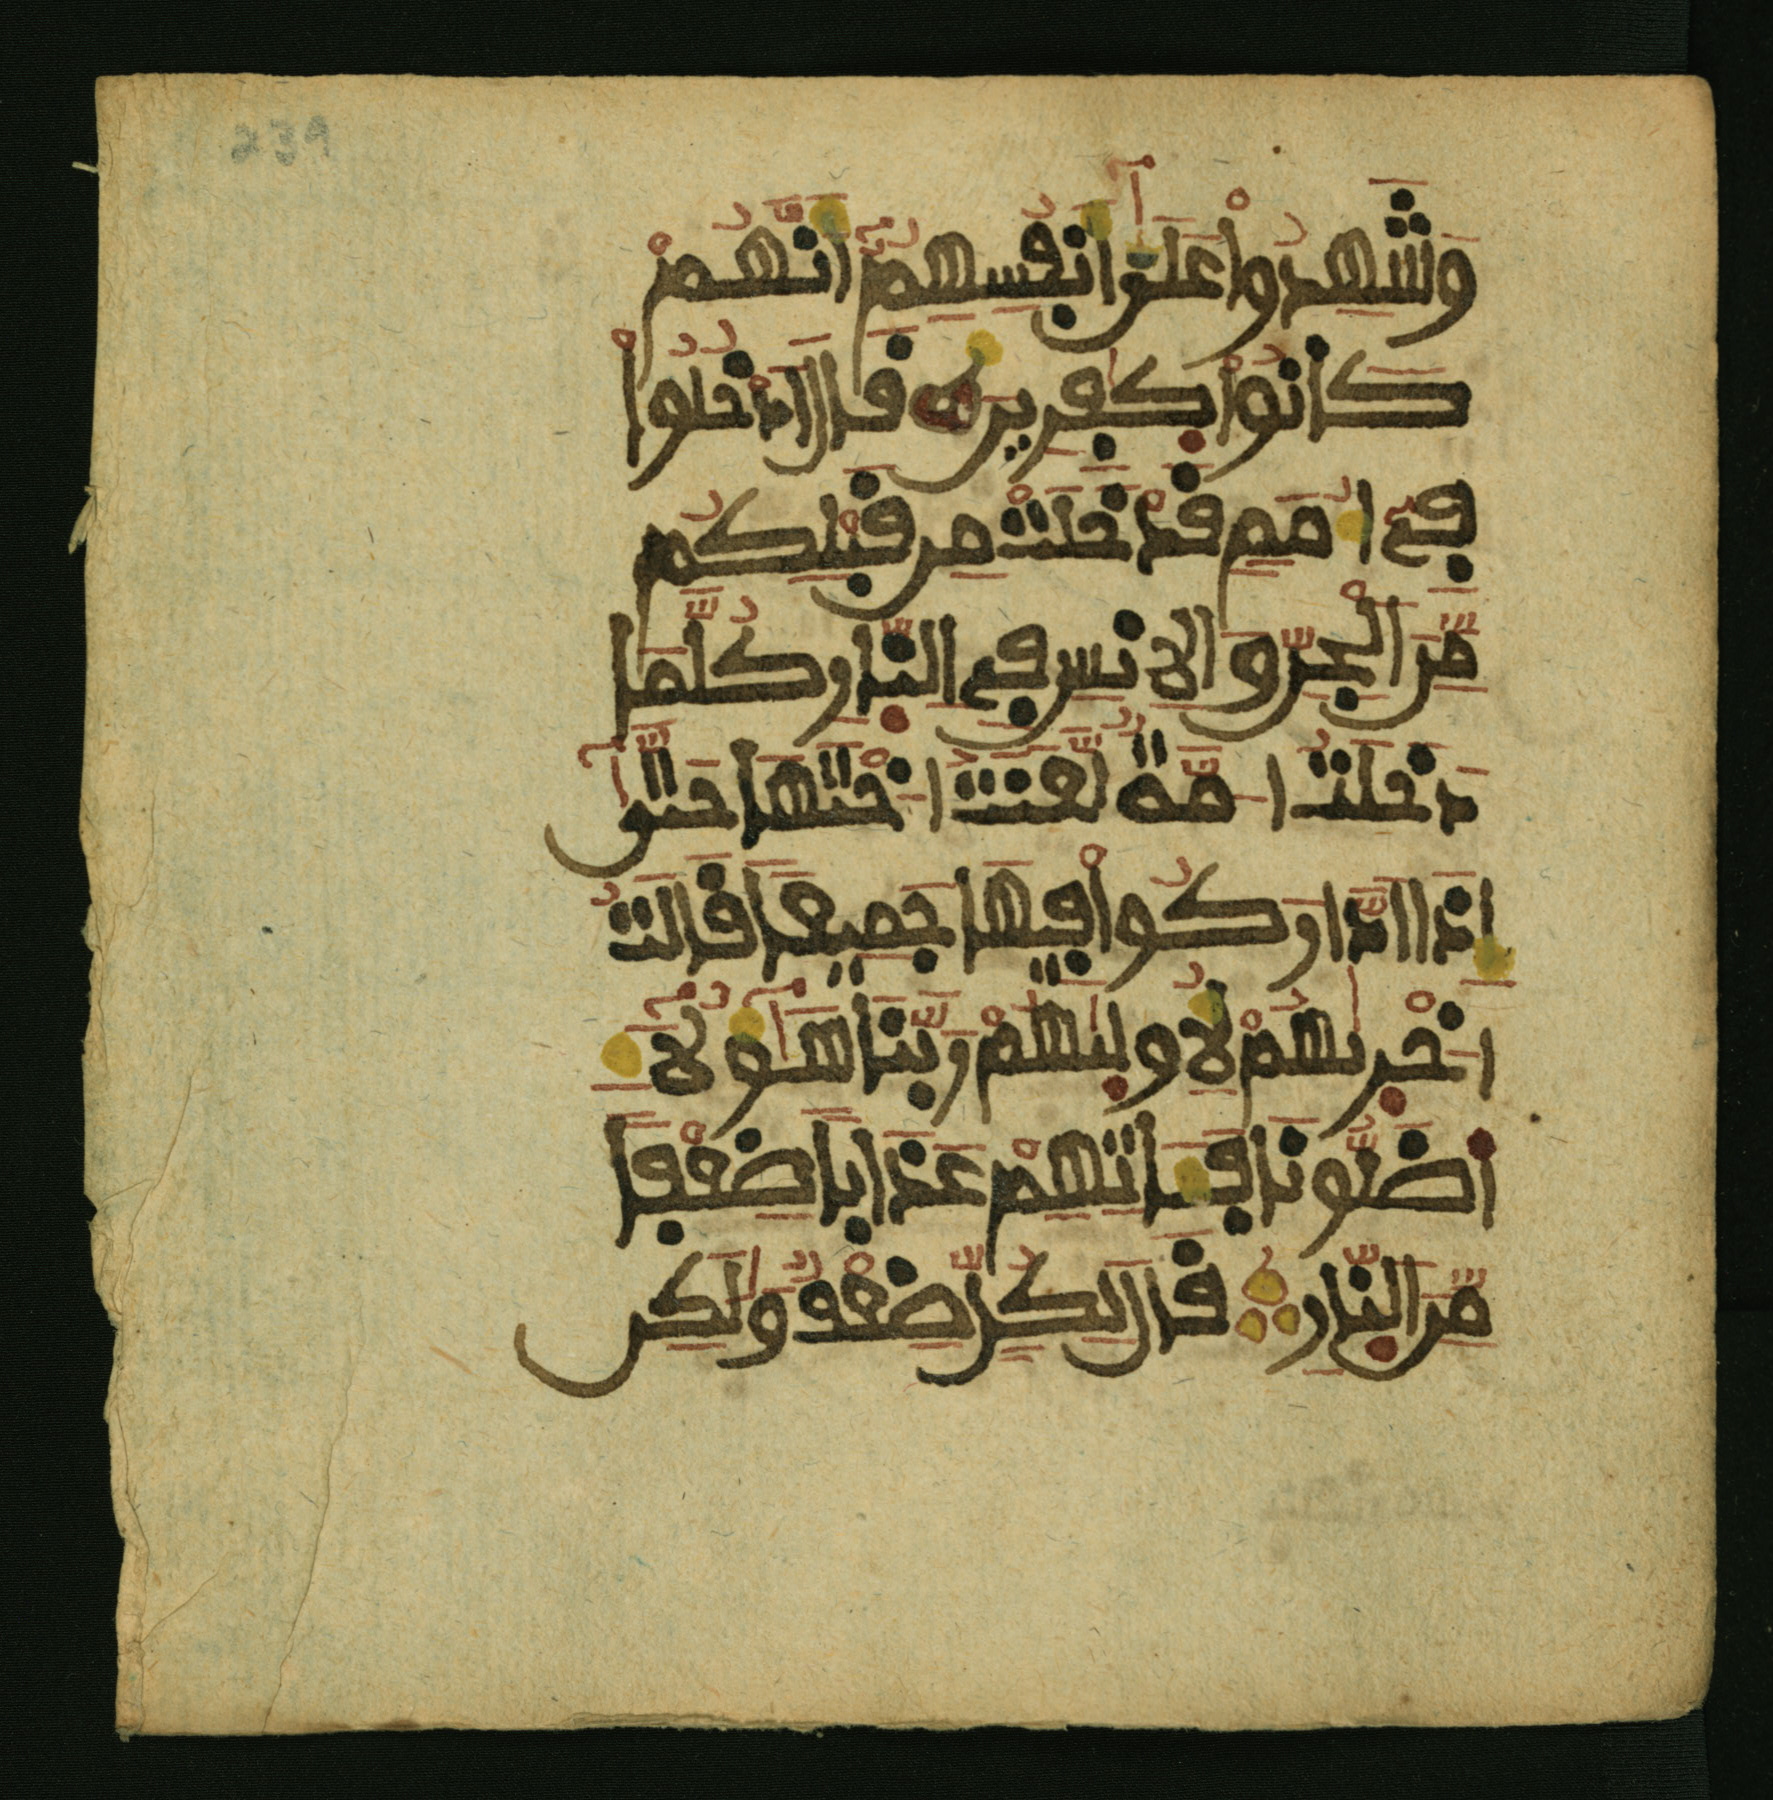 وَشَهِدُواْ عَلَىٰٓ أَنفُسِهِمُۥٓ أَنَّهُمْ
كَانُواْ كَٰفِرِينَ قَالَ ادْخُلُواْ
فِےٓ أُمَمٍ قَدْ خَلَتْ مِن قَبْلِكُم
مِّنَ الْجِنِّ وَالِانسِ فِے النّ۪ارِ كُلَّمَا
دَخَلَتُ امَّةٌ لَّعَنَتُ اخْتَهَا حَتَّىٰٓ
إِذَا اادَّارَكُواْ فِيهَا جَمِيعاً قَالَتُ
اخْر۪ىٰهُمْ لِأُول۪ىٰهُمْ رَبَّنَا هَٰٓؤُلَآءِ
اَضَلُّونَا فَـَٔاتِهِمْ عَذَاباً ضِعْفاً
مِّنَ النّ۪ارِ قَالَ لِكُلٍّ ضِعْفٌ وَلَٰكِن